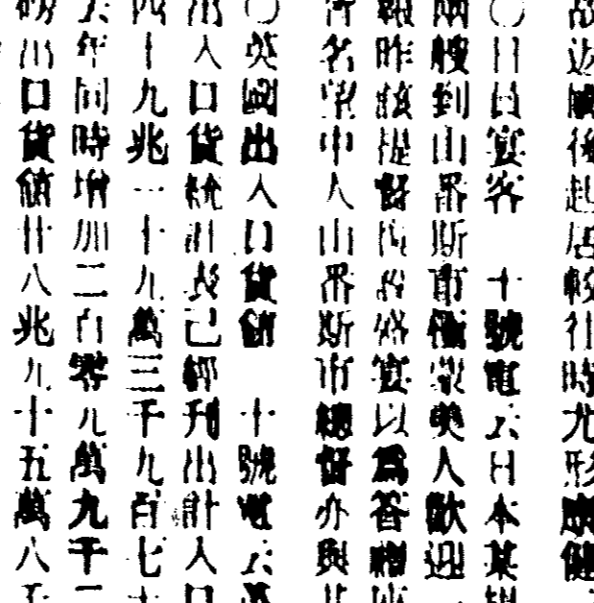 返國後起居較往時尤形康健
〇日員宴客 十號電云日本某
兩艘到山番斯市備蒙美人歡迎
昨該提督因設盛宴以為答
者名望中人山番斯市總督亦與
〇英國出入口貨價 十號電云英
出入口貨統計表已經刊出計入口
四十九兆一十九萬三千九百七十
年同時增加二百零九萬九千二
出口貨價廿八兆九十五萬八千